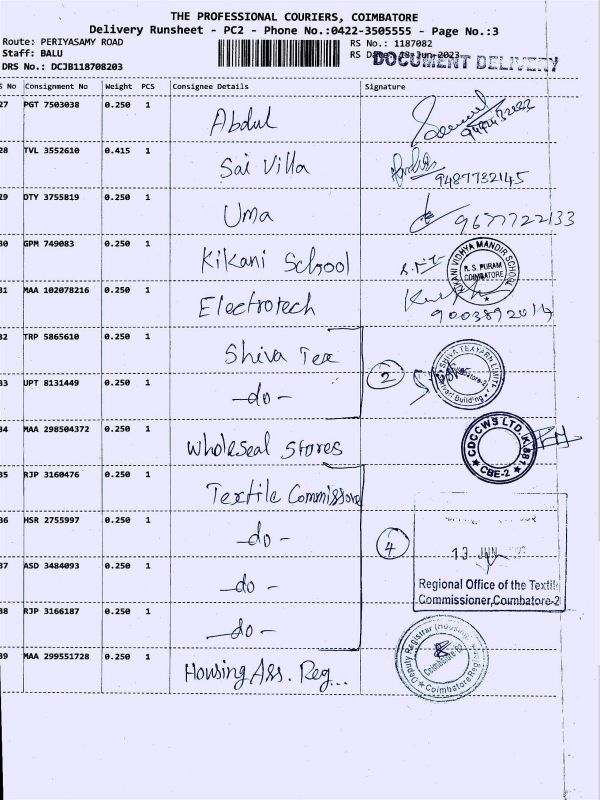 THE PROFESSIONAL COURIERS, COIMBATORE
Delivery Runsheet - PC2 - Phone No.:0422-3505555 - Page No.:3
Route: PERIYASAMY ROAD
RS No.: 1187082
Staff: BALU
RS Date: 13-Jun-2023
DOCUMENT DELIVERY
DRS No.: DCJB118708203
S No Consignment No Weight PCS Consignee Details Signature
27 PGT 7503038 0.250 1 Abdul
28 TVL 3552610 0.415 1 Sai Villa 9487732145
29 DTY 3755819 0.250 1 Uma 9677722133
30 GPM 749083 0.250 1 Kikani School
KIKANI VIDHYA MANDIR SCHOOL
R. S. PURAM
COIMBATORE
31 MAA 102078216 0.250 1 Electrotech
32 TRP 5865610 0.250 1 Shiva Tex
2
SHIVA TEXYARN LIMITE
33 UPT 8131449 0.250 1 -do-
34 MAA 298504372 0.250 1 Wholeseal Stores
CDCCWS LTD. K 881
CBE-2
35 RJP 3160476 0.250 1 Textile Commissione
36 HSR 2755997 0.250 1 -do-
4
13 JUN
37 ASD 3484093 0.250 1 -do-
Regional Office of the Textile
Commissioner, Coimbatore-2
38 RJP 3166187 0.250 1 -do-
39 MAA 299551728 0.250 1 Housing Ass. Reg...
Deputy Registrar (Housing)
Coimbatore Region